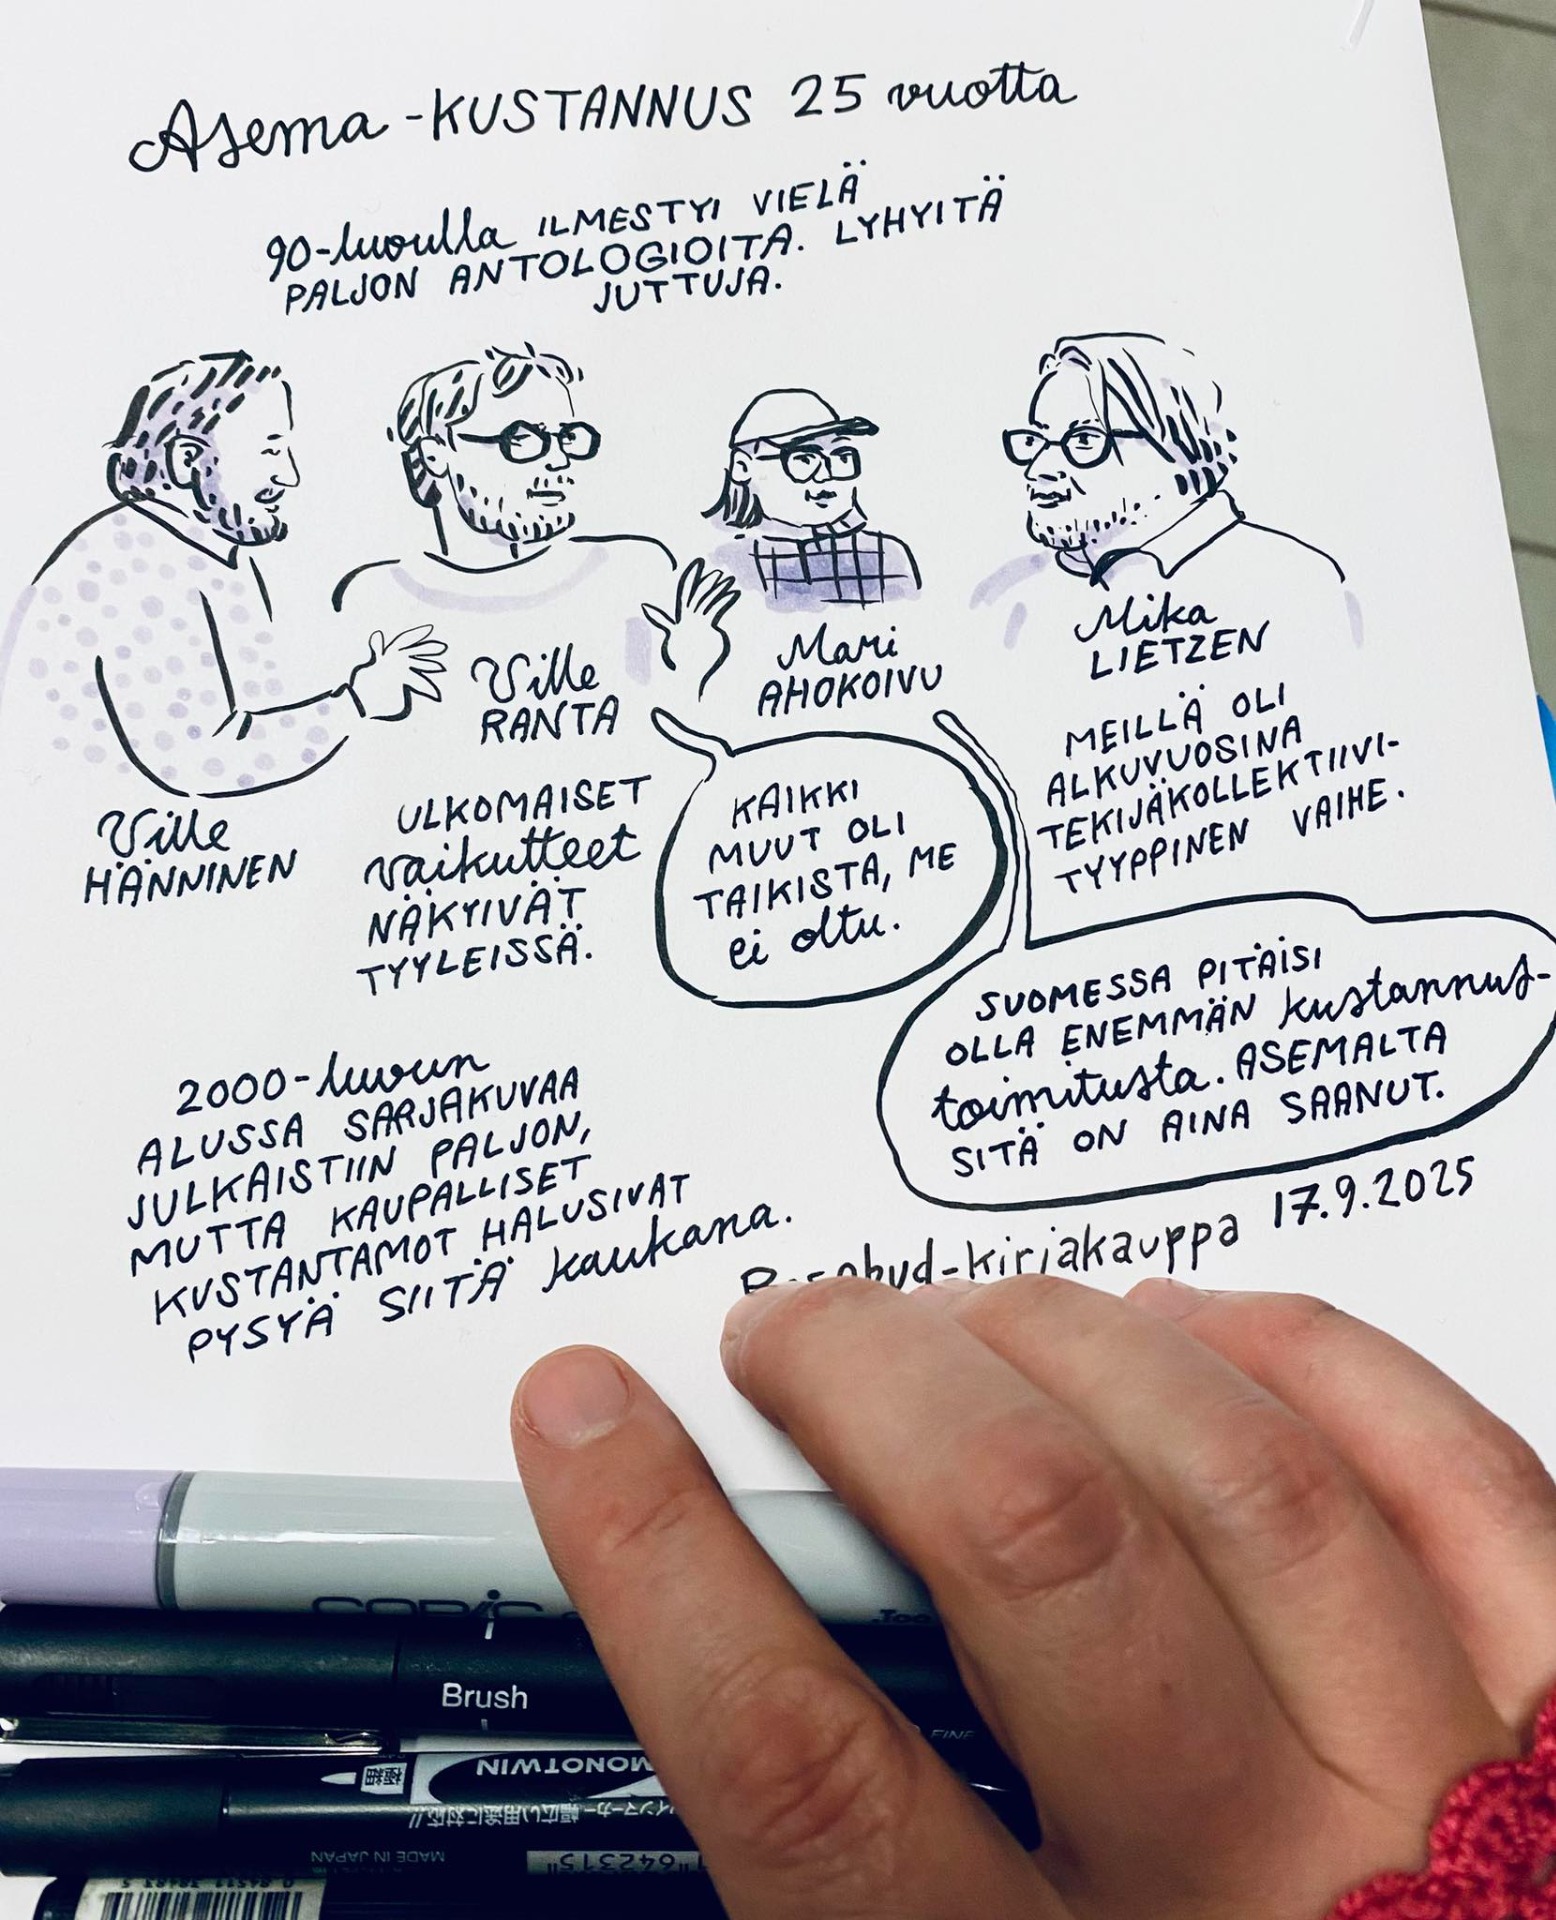 Asema-KUSTANNUS 25 vuotta
90-luvulla ILMESTYI VIELÄ
PALJON ANTOLOGIOITA. LYHYITÄ
JUTTUJA.
Ville
HÄNNINEN
Ville
RANTA
Mari
AHOKOIVU
Mika
LIETZEN
ULKOMAISET
vaikutteet
NÄKYIVÄT
TYYLEISSÄ.
KAIKKI
MUUT OLI
TAIKISTA, ME
ei oltu.
MEILLÄ OLI
ALKUVUOSINA
TEKIJÄKOLLEKTIIVI-
TYYPPINEN VAIHE.
SUOMESSA PITÄISI
OLLA ENEMMÄN kustannus-
toimitusta. ASEMALTA
SITÄ ON AINA SAANUT.
2000-luvun
ALUSSA SARJAKUVAA
JULKAISTIIN PALJON,
MUTTA KAUPALLISET
KUSTANTAMOT HALUSIVAT
PYSYÄ SIITÄ kaukana.
17.9.2025
COPIC
Brush
FINE
MONOTWIN
極細
MADE IN JAPAN